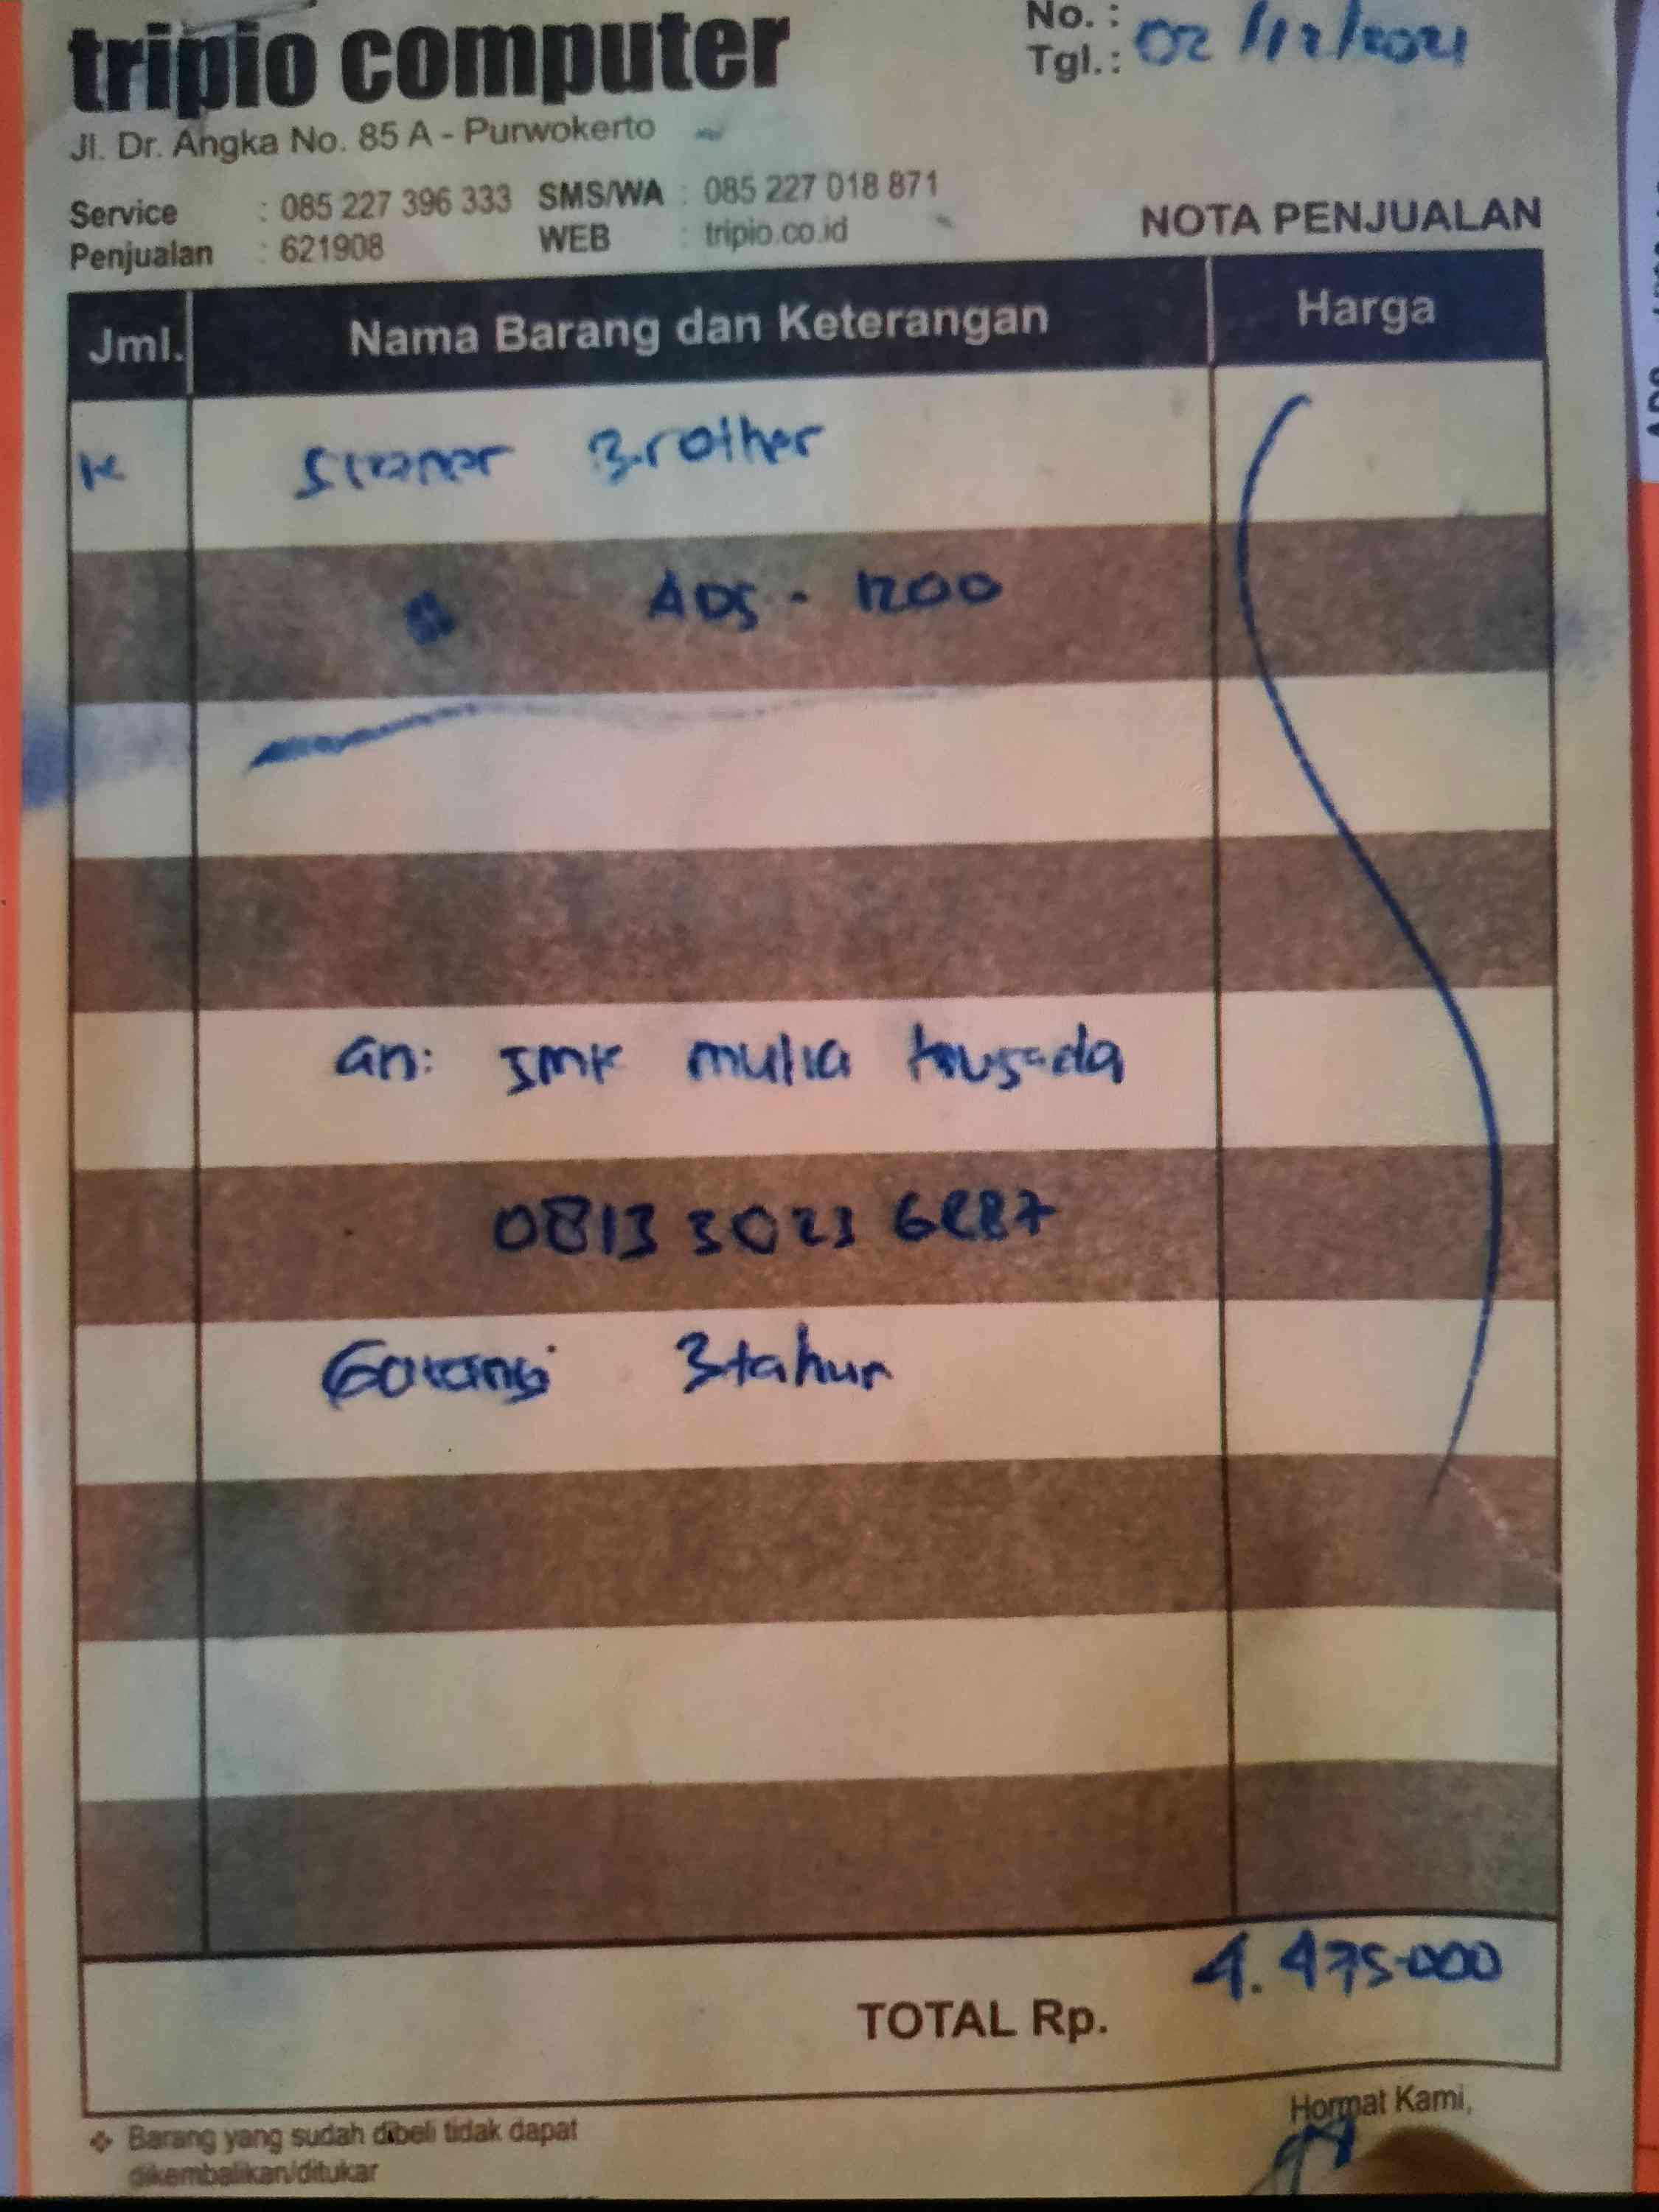 tripio computer
No. :
Tgl. : 02/12/2021
Jl. Dr. Angka No. 85 A - Purwokerto
Service : 085 227 396 333 SMS/WA : 085 227 018 871
Penjualan : 621908 WEB : tripio.co.id
NOTA PENJUALAN
Jml. Nama Barang dan Keterangan Harga
Scaner Brother
ADS - 1200
an: SMK mulia
0813 3023
Garansi 3 tahun
4.475.000
TOTAL Rp.
Hormat Kami,
Barang yang sudah dibeli tidak dapat
dikembalikan/ditukar